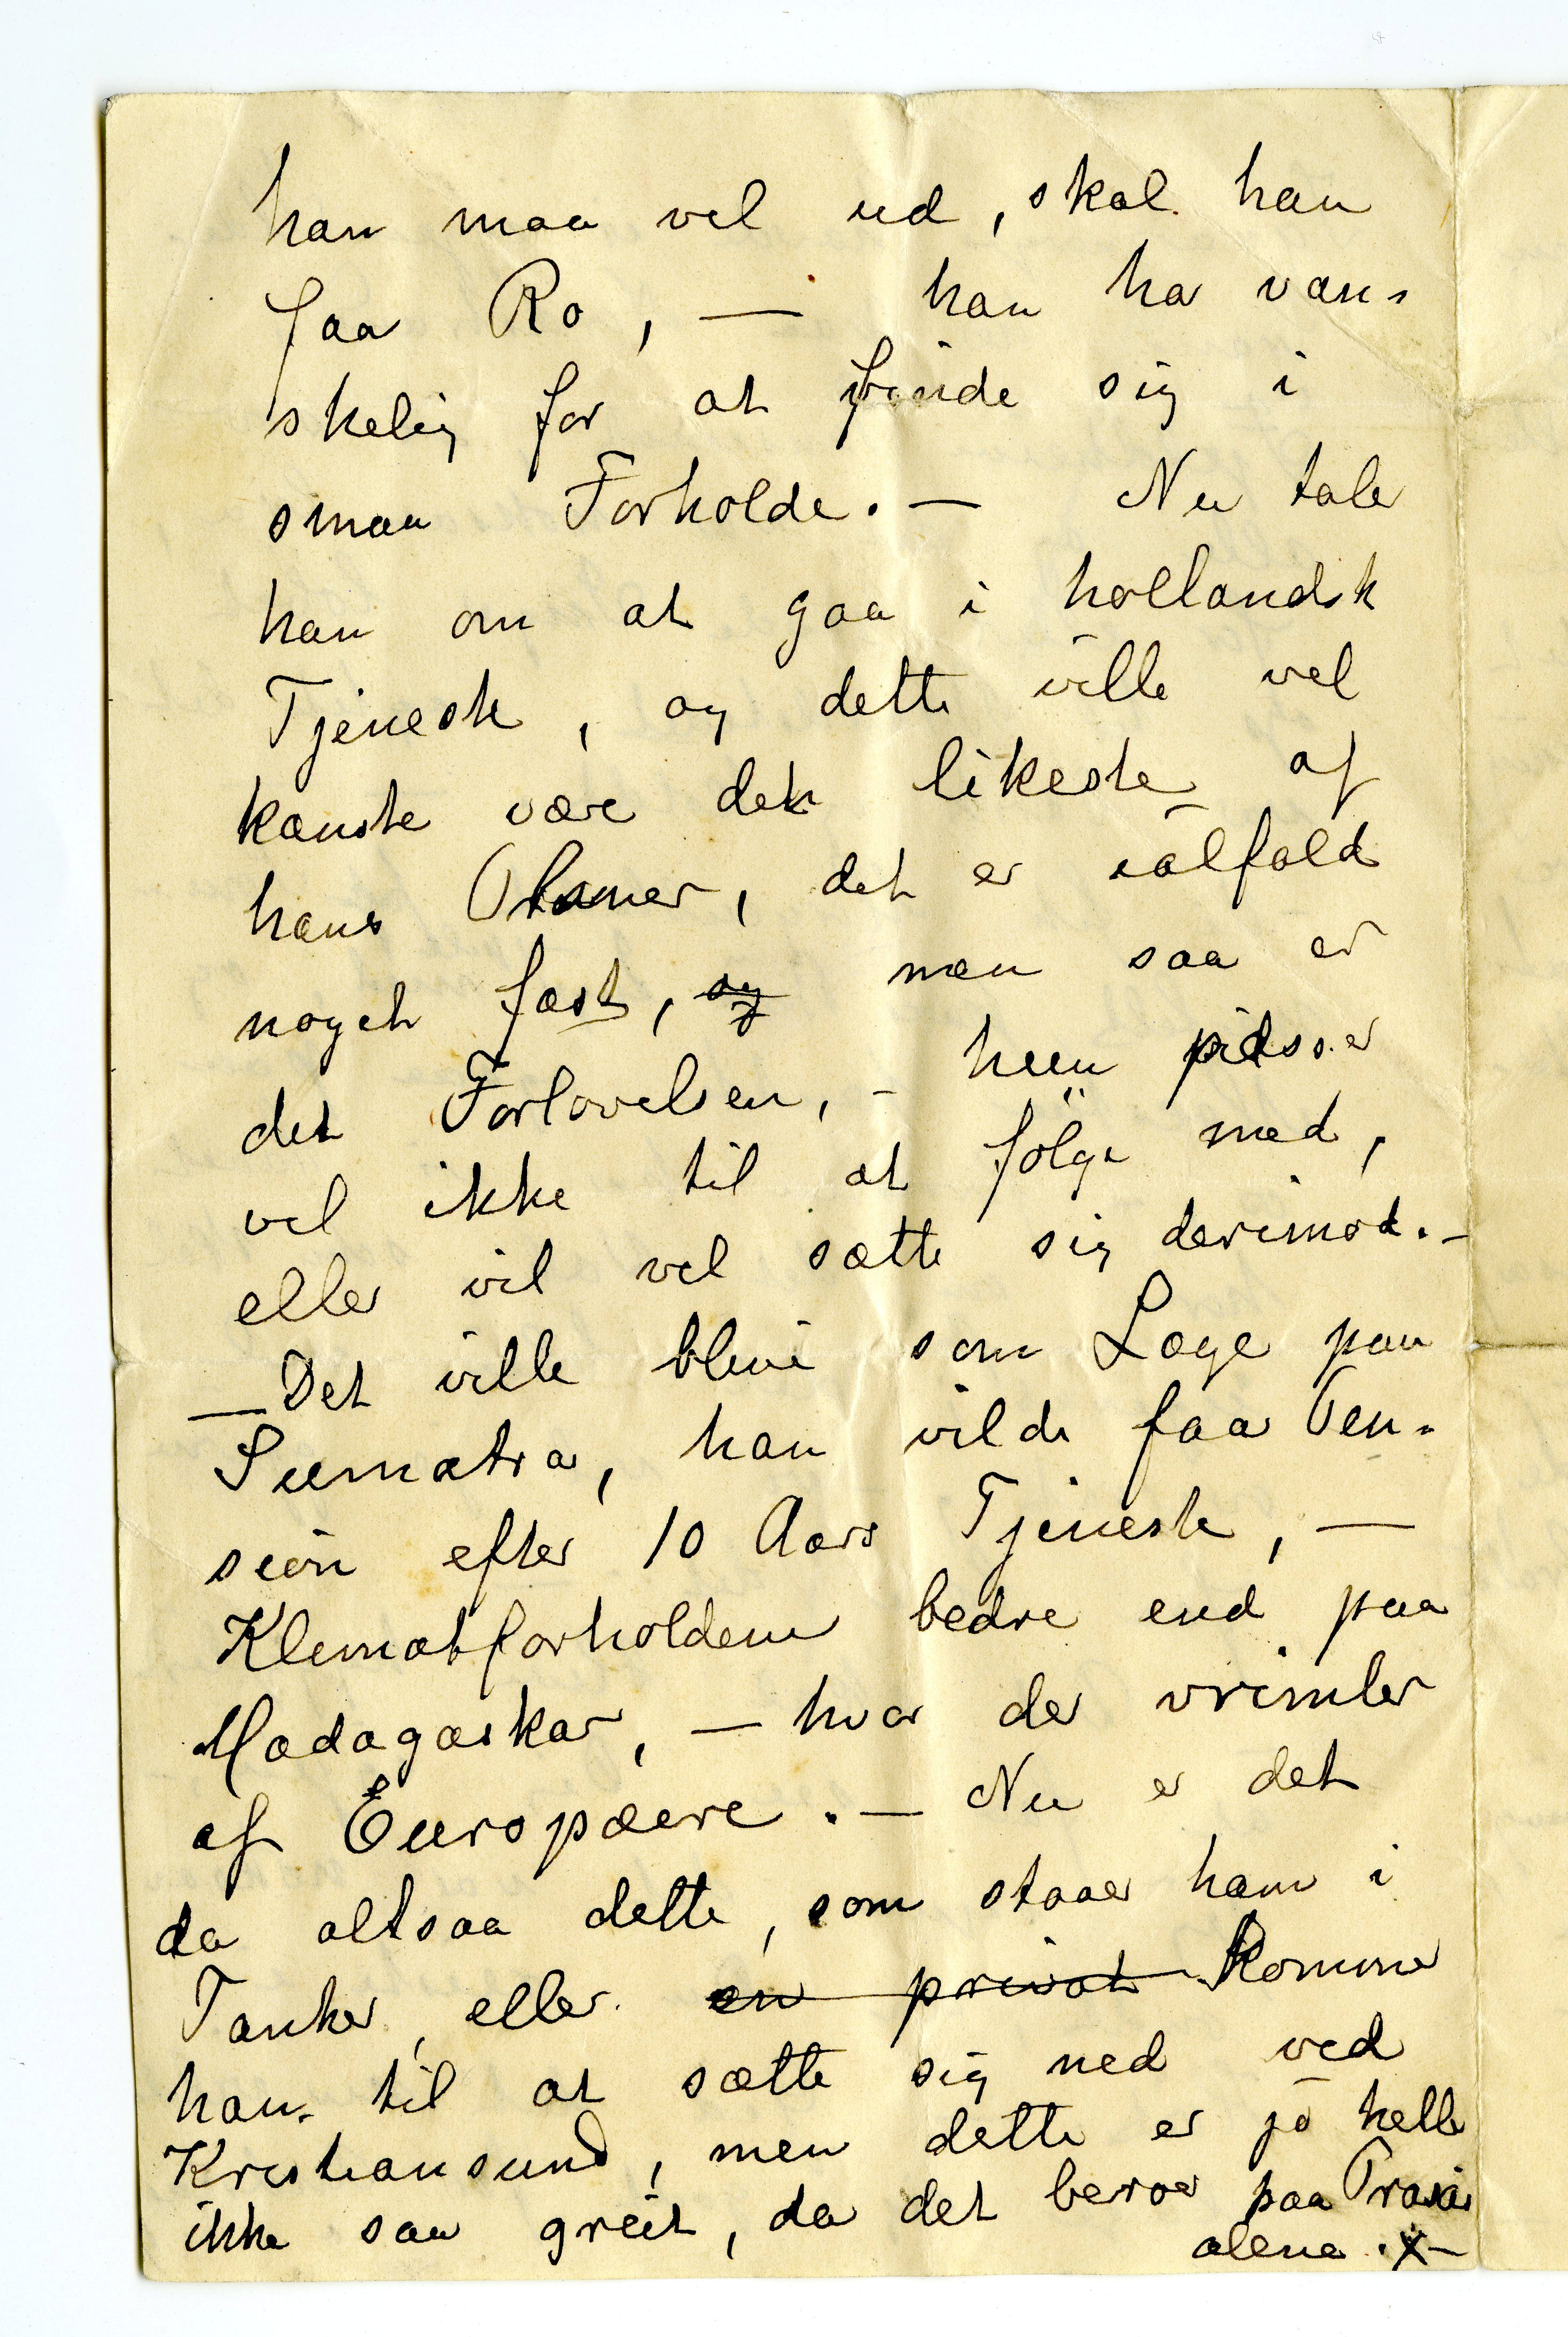 han maa vel ud, skal han
faa Ro, — han ha van-
skelig for at finde sig i
smaa Forholde. — Nu taler
han om at gaa i hollandsk
Tjeneste, og dette ville vel
kanske være det likeste af
hans Planer, det er ialfald
noget fast, og men saa er
det Forlovelsen, - hun pidsser
vel ikke til at følge med,
eller vil vel sætte sig derimod. -
— Det ville blive som Læge paa
Sumatra, han vilde faa Pen-
sion efter 10 Aars Tjeneste, —
Klimatforholdene bedre end paa
Madagaskar, — hvor der vrimler
af Europæere. — Nu er det
da altsaa dette, som staaer ham i
Tanker, eller en privat Kommer
han til at sætte sig ned ved
Kristiansund, men dette er jo heller
ikke saa greit, da det beroer paa Praxis
alene. x —